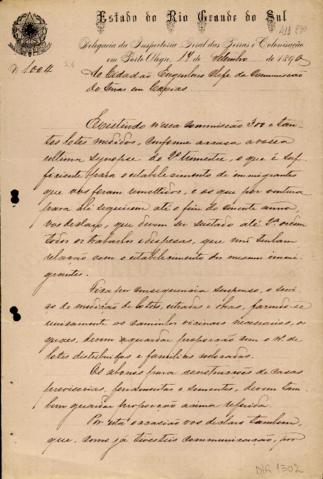 Estado do Rio Grande do Sul
Delegacia da Inspectoria Geral das Terras e Colonisação
em Porto Alegre, 14 de Setembro de 1890
Nº 1004
Ao Cidadão Engenheiro Chefe da Commissão
de Terras em Caxias
Existindo nessa Commissão 300 e tan-
tos lotes medidos, conforme accusa a vossa
ultima synopse do 2º trimestre, o que é suf-
ficiente para o estabelecimento de immigrantes
que vos foram remettidos, e os que por ventura
para ahi seguirem até o fim do corrente anno,
vos declaro, que devem ser sustado até 2ª ordem
todos os trabalhos e despezas, que não tenham
relação com o estabelecimento dos mesmos immi-
grantes.
Fica por consequencia suspenso, o servi-
ço de medição de lotes, estradas e obras, fazendo-se
unicamente os caminhos vicinaes necessarios, os
quaes, devem aguardar proporção com o nº de
lotes distribuidos e familias collocadas.
Os abonos para construcções de casas
provisorias, ferramentas e sementes, devem tam-
bem guardar proporção acima referida.
Por esta occasião vos declaro tambem,
que, como já tivesteis communicação, por
DIR 1302